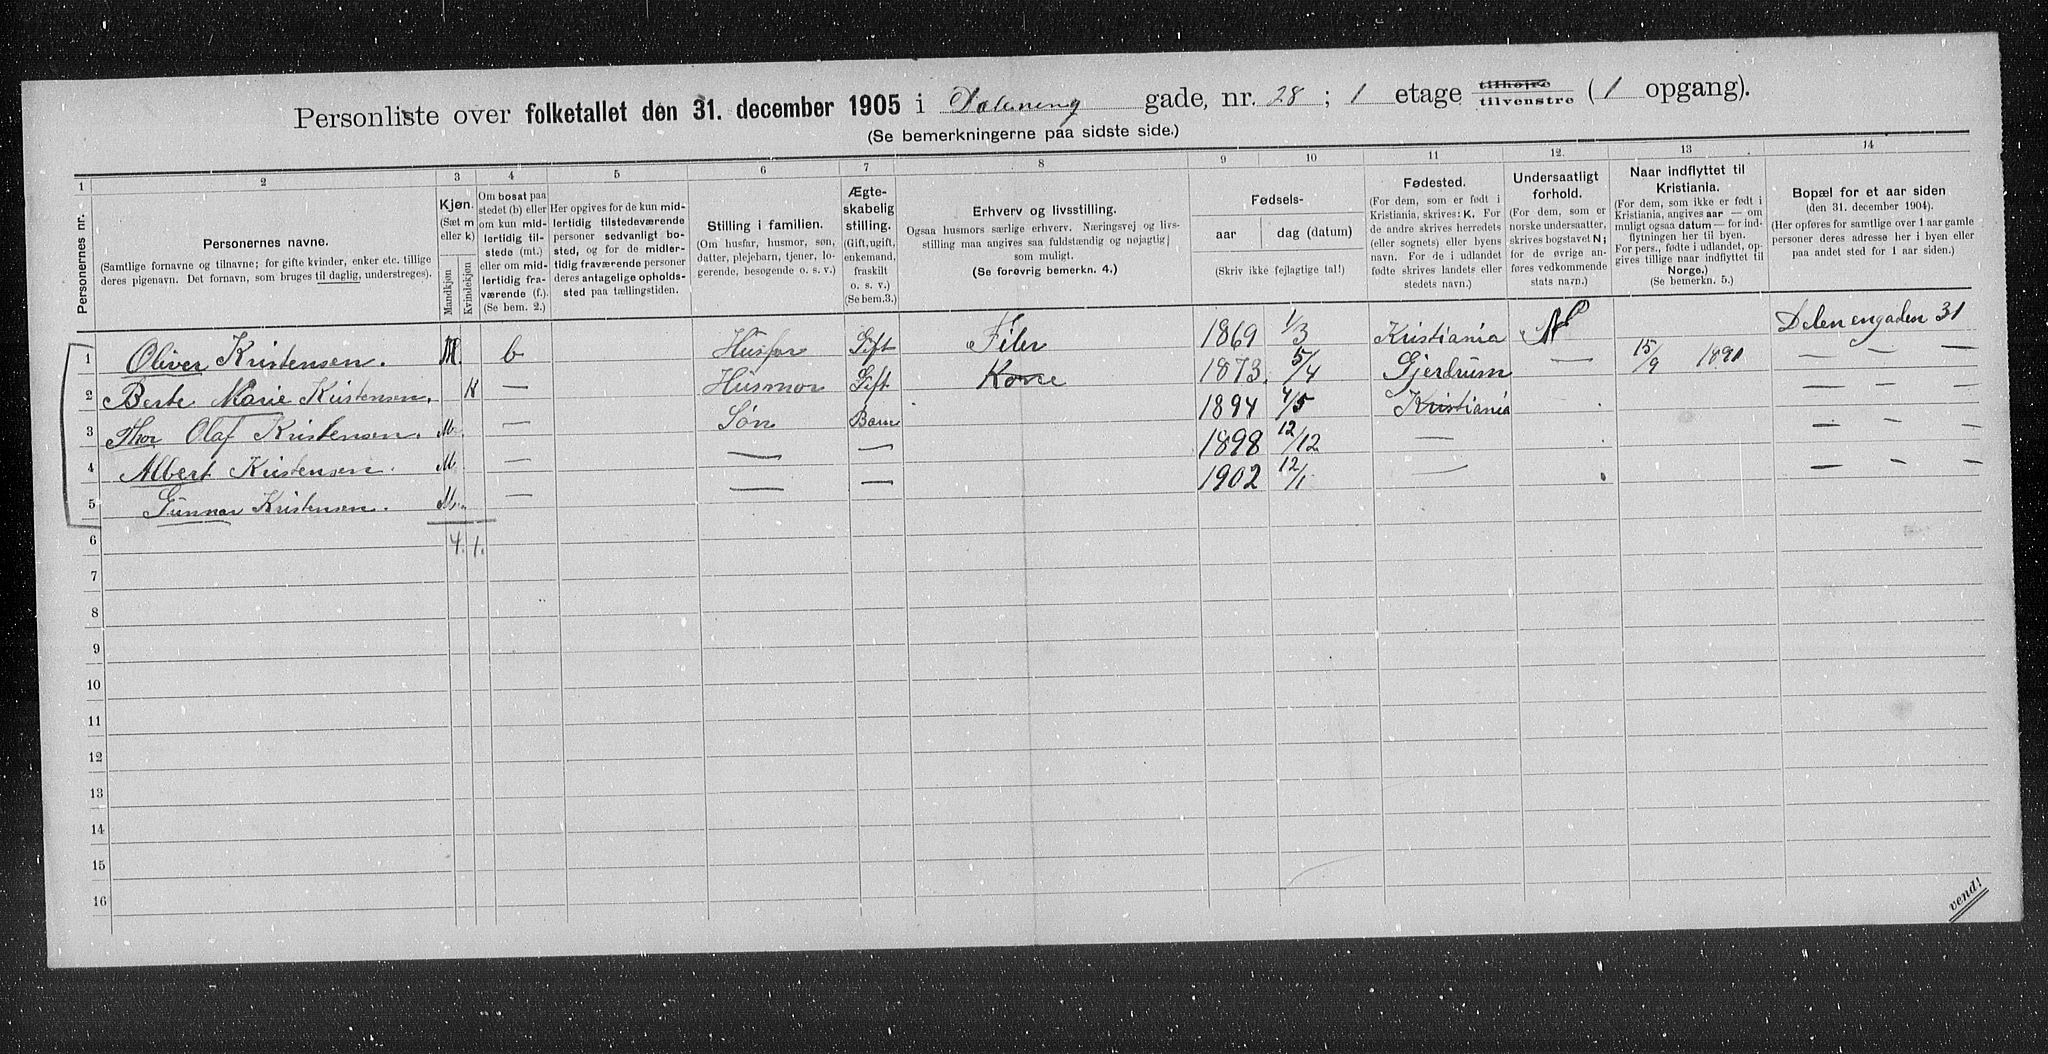 Personliste over folketallet den 31. december 1905 i Dæleneng gade, nr. 28 ; 1 etage tilhøjre tilvenstre ( 1 opgang).
(Se bemerkningerne paa sidste side.)
1 2 3 4 5 6 7 8 9 10 11 12. 13 14
Personernes nr.
Personernes navne.
(Samtlige fornavne og tilnavne; for gifte kvinder, enker etc. tillige
deres pigenavn. Det fornavn, som bruges til daglig, understreges).
Kjøn.
(Sæt m
eller k)
Mandkjøn
Kvindekjøn
Om bosat paa
stedet (b) eller
om kun mid-
lertidig til-
stede (mt.)
eller om mid-
lertidig fra-
værende (f.)
(Se bem. 2.)
Her opgives for de kun mid-
lertidig tilstedeværende
personer sedvanlig bo-
sted, og for de midler-
tidig fraværende personer
deres antagelige opholds-
sted paa tællingstiden.
Stilling i familien.
(Om husfar, husmor, søn,
datter, plejebarn, tjener, lo-
gerende, besøgende o. s. v.)
Ægte-
skabelig
stilling.
(Gift, ugift,
enkemand,
fraskilt
o. s. v.)
(Se bem.3.)
Erhverv og livsstilling.
Ogsaa husmors særlige erhverv. Næringsvej og livs-
stilling maa angives saa fuldstændig og nøjagtig
som muligt.
(Se forøvrig bemerkn. 4.)
Fødsels-
aar dag (datum)
(Skriv ikke fejlagtige tal!)
Fødested.
(For dem, som er født i
Kristiania, skrives: K. For
de andre skrives herredets
(eller sognets) eller byens
navn. For de i udlandet
fødte skrives landets eller
stedets navn.)
Undersaatligt
forhold.
(For dem, som er
norske undersaatter,
skrives bogstavet N;
for de øvrige an-
føres vedkommende
stats navn.)
Naar indflyttet til
Kristiania.
(For dem, som ikke er født i
Kristiania, angives aar — om
muligt ogsaa datum — for ind-
flytningen her til byen.
For pers., fødte i udlandet, op-
gives tillige naar indflyttet til
Norge.)
(Se bemerkn. 5.)
Bopæl for et aar siden
(den 31. december 1904).
(Her opføres for samtlige over 1 aar gamle
personer deres adresse her i byen eller
paa andet sted for 1 aar siden.)
1 Oliver Kristensen. M. b Husfar Gift Filer 1869 1/3 Kristiania N Delenengaden 31
2 Berte Marie Kristensen. K — Husmor Gift Kone 1873. 5/4 Gjerdrum — 15/9 1890 — — —
3 Thor Olaf Kristensen. M. — Søn Barn 1894 4/5 Kristiania — — —
4 Albert Kristensen. M. — — — 1898 12/12 — — — —
5 Gunnar Kristensen. M. — — — 1902 12/1 — — — —
6 4. 1.
7
8
9
10
11
12
13
14
15
16
vend!